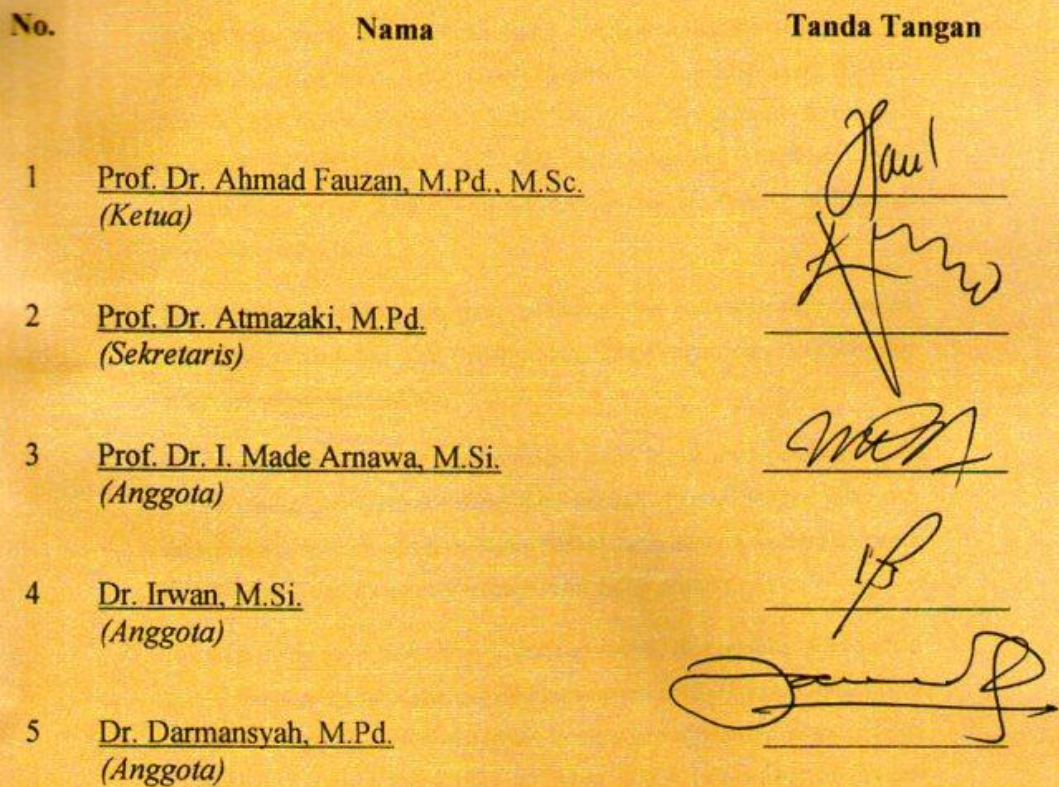 No. Nama Tanda Tangan
1 Prof. Dr. Ahmad Fauzan, M.Pd., M.Sc.
(Ketua)
2 Prof. Dr. Atmazaki, M.Pd.
(Sekretaris)
3 Prof. Dr. I. Made Arnawa, M.Si.
(Anggota)
4 Dr. Irwan, M.Si.
(Anggota)
5 Dr. Darmansyah, M.Pd.
(Anggota)